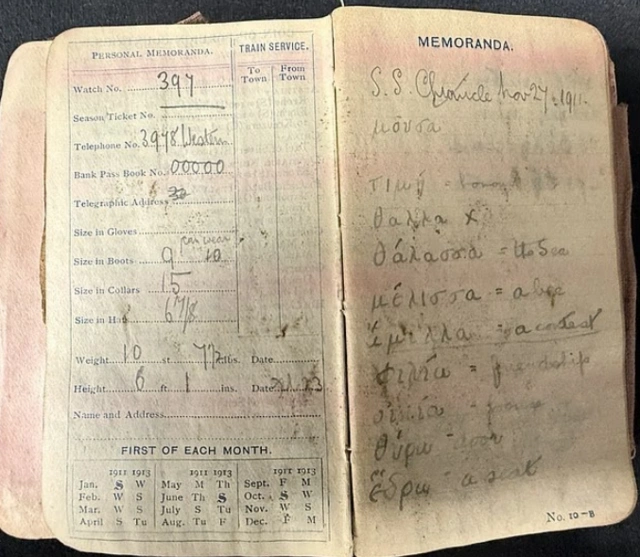 PERSONAL MEMORANDA.
Watch No. 397
Season Ticket No.
Telephone No. 3978 Western
Bank Pass Book No. 00000
Telegraphic Address
Size in Gloves
can wear
Size in Boots 9 10
Size in Collars 15
Size in Hat 6 7/8
Weight 10 st 7½ lbs. Date
Height 6 ft 1 ins. Date
Name and Address
TRAIN SERVICE.
To Town From Town
FIRST OF EACH MONTH.
1911 1913 1911 1913 1911 1913
Jan. S W May M Th Sept. F M
Feb. W S June Th S Oct. S W
Mar. W S July S Tu Nov. W S
April S Tu Aug. Tu F Dec. F M
MEMORANDA.
S.S. Chronicle Nov 27, 1911.
μουσα
τιμή =
θαλλα X
θάλασσα = the Sea
μέλισσα = a bee
ἁμιλλα = a contest
φιλία = friendship
οἰκία =
θύρα door
ἕδρα a seat
No. 10-B